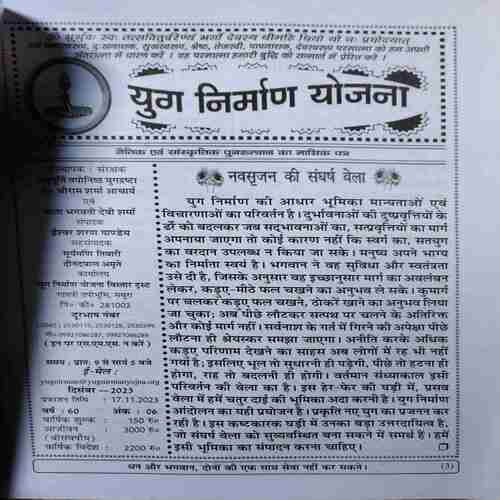 ॐ भूर्भुवः स्वः तत्सवितुर्वरेण्यं भर्गो देवस्य धीमहि धियो यो नः प्रचोदयात्
उस प्राणस्वरूप, दुःखनाशक, सुखस्वरूप, श्रेष्ठ, तेजस्वी, पापनाशक, देवस्वरूप परमात्मा को हम अपनी
अंतरात्मा में धारण करें । वह परमात्मा हमारी बुद्धि को सन्मार्ग में प्रेरित करे ।
युग निर्माण योजना
नैतिक एवं सांस्कृतिक पुनरुत्थान का मासिक पत्र
संस्थापक : संरक्षक
तपोनिष्ठ युगद्रष्टा
श्रीराम शर्मा आचार्य
एवं
माता भगवती देवी शर्मा
संपादक
ईश्वर शरण पाण्डेय
सहसंपादक
सूर्यमणि तिवारी
दीनदयाल अमृते
कार्यालय
युग निर्माण योजना विस्तार ट्रस्ट
गायत्री तपोभूमि, मथुरा
पि० को० 281003
दूरभाष नंबर
( इन पर एस.एम.एस. न करें )
समय : प्रातः ९ से सायं ५ बजे
ई-मेल :
yugnirman@yugnirmanyojna.org
दिसंबर—2023
प्रकाशन तिथि : 17.11.2023
वर्ष : 60 अंक : 06
वार्षिक शुल्क : 150 रु०
आजीवन : 3000 रु०
(बीसवर्षीय)
वार्षिक विदेश : 2200 रु०
नवसृजन की संघर्ष वेला
युग निर्माण की आधार भूमिका मान्यताओं एवं
विचारणाओं का परिवर्तन है। दुर्भावनाओं की दुष्प्रवृत्तियों के
ढर्रे को बदलकर जब सद्भावनाओं का, सत्प्रवृत्तियों का मार्ग
अपनाया जाएगा तो कोई कारण नहीं कि स्वर्ग का, सतयुग
का वरदान उपलब्ध न किया जा सके। मनुष्य अपने भाग्य
का निर्माता स्वयं है। भगवान ने वह सुविधा और स्वतंत्रता
उसे दी है, जिसके अनुसार वह इच्छानुसार मार्ग का अवलंबन
लेकर, कडुए-मीठे फल चखने का अनुभव ले सके। कुमार्ग
पर चलकर कडुए फल चखने, ठोकरें खाने का अनुभव लिया
जा चुका; अब पीछे लौटकर सत्पथ पर चलने के अतिरिक्त
और कोई मार्ग नहीं। सर्वनाश के गर्त में गिरने की अपेक्षा पीछे
लौटना ही श्रेयस्कर समझा जाएगा। अनीति करके अधिक
कडुए परिणाम देखने का साहस अब लोगों में रह भी नहीं
गया है। इसलिए भूल तो सुधारनी ही पड़ेगी, पीछे तो हटना ही
होगा, राह तो बदलनी ही होगी। वर्तमान संध्याकाल इसी
परिवर्तन की वेला का है। इस हेर-फेर की घड़ी में, प्रसव
वेला में हमें चतुर दाई की भूमिका अदा करनी है। युग निर्माण
आंदोलन का यही प्रयोजन है। प्रकृति नए युग का प्रजनन कर
रही है। इस कष्टकारक घड़ी में उनका बड़ा उत्तरदायित्व है,
जो संघर्ष वेला को सुव्यवस्थित बना सकने में समर्थ हैं। हमें
इसी भूमिका का संपादन करना चाहिए।
धन और भगवान, दोनों की एक साथ सेवा नहीं कर सकते। (3)